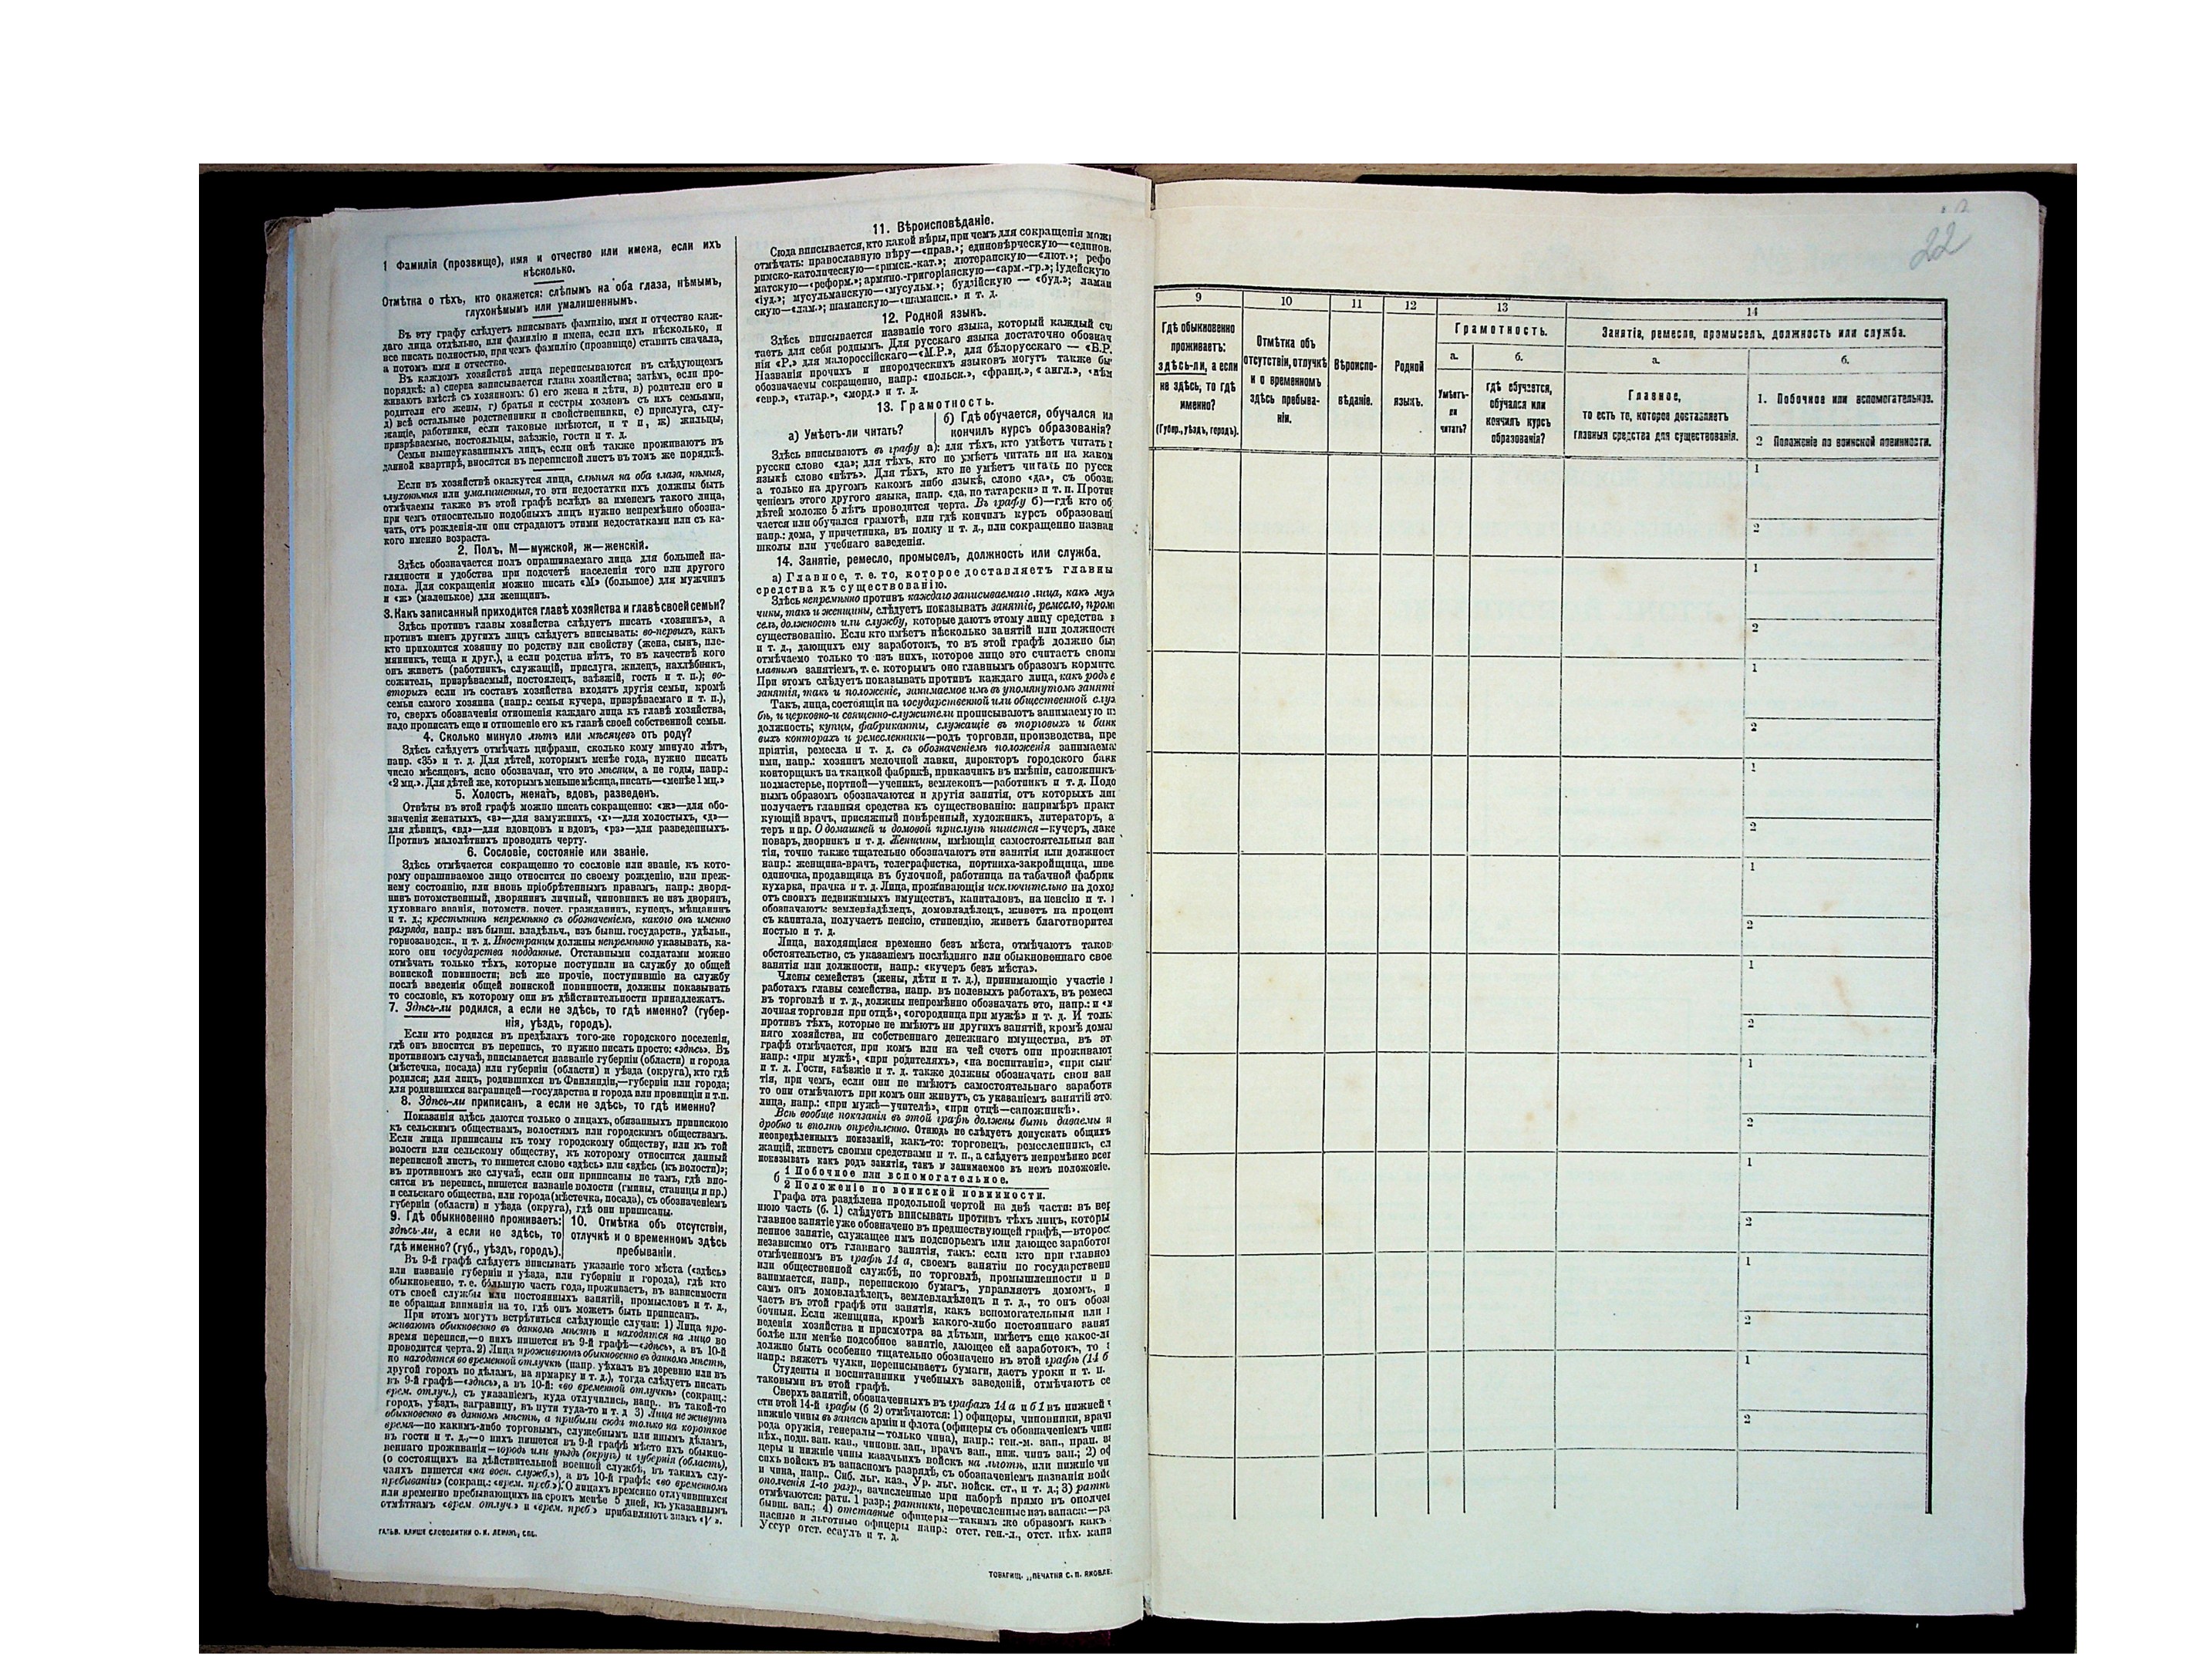 1 Фамилія (прозвище), имя и отчество или имена, если ихъ
нѣсколько.
Отмѣтка о тѣхъ, кто окажется: слѣпымъ на оба глаза, нѣмымъ,
глухонѣмымъ или умалишеннымъ.
Въ эту графу слѣдуетъ вписывать фамилію, имя и отчество каж-
даго лица отдѣльно, или фамилію и имена, если ихъ нѣсколько, и
все писать полностью, при чемъ фамилію (прозвище) ставить сначала,
а потомъ имя и отчество.
Въ каждомъ хозяйствѣ лица переписываются въ слѣдующемъ
порядкѣ: а) сперва записывается глава хозяйства; затѣмъ, если про-
живаютъ вмѣстѣ съ хозяиномъ: б) его жена и дѣти, в) родители его и
родители его жены, г) братья и сестры хозяевъ съ ихъ семьями,
д) всѣ остальные родственники и свойственники, е) прислуга, слу-
жащіе, работники, если таковые имѣются, и т п, ж) жильцы,
призрѣваемые, постояльцы, заѣзжіе, гости и т. д.
Семьи вышеуказанныхъ лицъ, если онѣ также проживаютъ въ
данной квартирѣ, вносятся въ переписной листъ въ томъ же порядкѣ.
Если въ хозяйствѣ окажутся лица, слѣпыя на оба глаза, нѣмыя,
глухонѣмыя или умалишенныя, то эти недостатки ихъ должны быть
отмѣчаемы также въ этой графѣ вслѣдъ за именемъ такого лица,
при чемъ относительно подобныхъ лицъ нужно непремѣнно обозна-
чать, отъ рожденія-ли они страдаютъ этими недостатками или съ ка-
кого именно возраста.
2. Полъ, М—мужской, ж—женскій.
Здѣсь обозначается полъ опрашиваемаго лица для большей на-
глядности и удобства при подсчетѣ населенія того или другого
пола. Для сокращенія можно писать «М» (большое) для мужчинъ
и «ж» (маленькое) для женщинъ.
3. Какъ записанный приходится главѣ хозяйства и главѣ своей семьи?
Здѣсь противъ главы хозяйства слѣдуетъ писать «хозяинъ», а
противъ именъ другихъ лицъ слѣдуетъ вписывать: во-первыхъ, какъ
кто приходится хозяину по родству или свойству (жена, сынъ, пле-
мянникъ, теща и друг.), а если родства нѣтъ, то въ качествѣ кого
онъ живетъ (работникъ, служащій, прислуга, жилецъ, нахлѣбникъ,
сожитель, призрѣваемый, постоялецъ, заѣзжій, гость и т. п.); во-
вторыхъ если въ составъ хозяйства входятъ другія семьи, кромѣ
семьи самого хозяина (напр.: семья кучера, призрѣваемаго и т. п.),
то, сверхъ обозначенія отношенія каждаго лица къ главѣ хозяйства,
надо прописать еще и отношеніе его къ главѣ своей собственной семьи.
4. Сколько минуло лѣтъ или мѣсяцевъ отъ роду?
Здѣсь слѣдуетъ отмѣчать цифрами, сколько кому минуло лѣтъ,
напр. «35» и т. д. Для дѣтей, которымъ менѣе года, нужно писать
число мѣсяцевъ, ясно обозначая, что это мѣсяцы, а не годы, напр.:
«2 мц.». Для дѣтей же, которымъ меньше мѣсяца, писать—«менѣе 1 мц.»
5. Холостъ, женатъ, вдовъ, разведенъ.
Отвѣты въ этой графѣ можно писать сокращенно: «ж»—для обо-
значенія женатыхъ, «з»—для замужнихъ, «х»—для холостыхъ, «д»—
для дѣвицъ, «вд»—для вдовцовъ и вдовъ, «рз»—для разведенныхъ.
Противъ малолѣтнихъ проводить черту.
6. Сословіе, состояніе или званіе.
Здѣсь отмѣчается сокращенно то сословіе или званіе, къ кото-
рому опрашиваемое лицо относится по своему рожденію, или преж-
нему состоянію, или вновь пріобрѣтеннымъ правамъ, напр.: дворя-
нинъ потомственный, дворянинъ личный, чиновникъ не изъ дворянъ,
духовнаго званія, потомств. почет. гражданинъ, купецъ, мѣщанинъ
и т. д.; крестьянинъ непремѣнно съ обозначеніемъ, какого онъ именно
разряда, напр.: изъ бывш. владѣльч., изъ бывш. государств., удѣльн.,
горнозаводск., и т. д. Иностранцы должны непремѣнно указывать, ка-
кого они государства подданные. Отставными солдатами можно
отмѣчать только тѣхъ, которые поступили на службу до общей
воинской повинности; всѣ же прочіе, поступившіе на службу
послѣ введенія общей воинской повинности, должны показывать
то сословіе, къ которому они въ дѣйствительности принадлежатъ.
7. Здѣсь-ли родился, а если не здѣсь, то гдѣ именно? (губер-
нія, уѣздъ, городъ).
Если кто родился въ предѣлахъ того-же городского поселенія,
гдѣ онъ вносится въ перепись, то нужно писать просто: «здѣсь». Въ
противномъ случаѣ, вписывается названіе губерніи (области) и города
(мѣстечка, посада) или губерніи (области) и уѣзда (округа), кто гдѣ
родился; для лицъ, родившихся въ Финляндіи,—губерніи или города;
для родившихся заграницей—государства и города или провинціи и т.п.
8. Здѣсь-ли приписанъ, а если не здѣсь, то гдѣ именно?
Показанія здѣсь даются только о лицахъ, обязанныхъ припискою
къ сельскимъ обществамъ, волостямъ или городскимъ обществамъ.
Если лица приписаны къ тому городскому обществу, или къ той
волости или сельскому обществу, къ которому относится данный
переписной листъ, то пишется слово «здѣсь» или «здѣсь (къ волости)»;
въ противномъ же случаѣ, если они приписаны не тамъ, гдѣ вно-
сятся въ перепись, пишется названіе волости (гмины, станицы и пр.)
и сельскаго общества, или города (мѣстечка, посада), съ обозначеніемъ
губерніи (области) и уѣзда (округа), гдѣ они приписаны.
9. Гдѣ обыкновенно проживаетъ:
здѣсь-ли, а если не здѣсь, то
гдѣ именно? (губ., уѣздъ, городъ).
10. Отмѣтка объ отсутствіи,
отлучкѣ и о временномъ здѣсь
пребываніи.
Въ 9-й графѣ слѣдуетъ вписывать указаніе того мѣста («здѣсь»
или названіе губерніи и уѣзда, или губерніи и города), гдѣ кто
обыкновенно, т. е. бо́льшую часть года, проживаетъ, въ зависимости
отъ своей службы или постоянныхъ занятій, промысловъ и т. д.,
не обращая вниманія на то, гдѣ онъ можетъ быть приписанъ.
При этомъ могутъ встрѣтиться слѣдующіе случаи: 1) Лица про-
живаютъ обыкновенно въ данномъ мѣстѣ и находятся на лицо во
время переписи,—о нихъ пишется въ 9-й графѣ—«здѣсь», а въ 10-й
проводится черта. 2) Лица проживаютъ обыкновенно въ данномъ мѣстѣ,
но находятся во временной отлучкѣ (напр. уѣхалъ въ деревню или въ
другой городъ по дѣламъ, на ярмарку и т. д.), тогда слѣдуетъ писать
въ 9-й графѣ—«здѣсь», а въ 10-й: «во временной отлучкѣ» (сокращ.:
врем. отлуч.), съ указаніемъ, куда отлучились, напр. въ такой-то
городъ, уѣздъ, заграницу, въ пути туда-то и т. д 3) Лица не живутъ
обыкновенно въ данномъ мѣстѣ, а прибыли сюда только на короткое
время—по какимъ-либо торговымъ, служебнымъ или инымъ дѣламъ,
въ гости и т. д.,—о нихъ пишется въ 9-й графѣ мѣсто ихъ обыкно-
веннаго проживанія—городъ или уѣздъ (округъ) и губернія (область),
(о состоящихъ на дѣйствительной военной службѣ, въ такихъ слу-
чаяхъ пишется «на воен. служб.»), а въ 10-й графѣ: «во временномъ
пребываніи» (сокращ.: «врем. преб.»). О лицахъ временно отлучившихся
или временно пребывающихъ на срокъ менѣе 5 дней, къ указаннымъ
отмѣткамъ «врем. отлуч.» и «врем. преб.» прибавляютъ знакъ «V».
ГАЛЬВ. КЛИШЕ СЛОВОЛИТНИ О. И. ЛЕМАНЪ, СПБ.
11. Вѣроисповѣданіе.
Сюда вписывается, кто какой вѣры, при чемъ для сокращенія
отмѣчать: православную вѣру—«прав.»; единовѣрческую—«единов.
римско-католическую—«римск.-кат.»; лютеранскую—«лют.»; рефо
матскую—«реформ.»; армяно.-григоріанскую—«арм.-гр.»; іудейскую
«іуд.»; мусульманскую—«мусульм.»; буддійскую — «буд.»; ламаи
скую—«лам.»; шаманскую—«шаманск.» и т. д.
12. Родной языкъ.
Здѣсь вписывается названіе того языка, который каждый сч
таетъ для себя роднымъ. Для русскаго языка достаточно обознач
нія «Р.» для малороссійскаго—«М.Р.», для бѣлорусскаго — «Б.Р.
Названія прочихъ и инородческихъ языковъ могутъ также бы
обозначаемы сокращенно, напр.: «польск.», «франц.», « англ.», «нѣм
«евр.», «татар.», «морд.» и т. д.
13. Грамотность.
а) Умѣетъ-ли читать?
б) Гдѣ обучается, обучался ил
кончилъ курсъ образованія?
Здѣсь вписываютъ въ графу а): для тѣхъ, кто умѣетъ читать
русски слово «да»; для тѣхъ, кто не умѣетъ читать ни на каком
языкѣ слово «нѣтъ». Для тѣхъ, кто не умѣетъ читать по русск
а только на другомъ какомъ либо языкѣ, слово «да», съ обозн
ченіемъ этого другого языка, напр. «да, по татарски» и т. п. Против
дѣтей моложе 5 лѣтъ проводится черта. Въ графу б)—гдѣ кто об
чается или обучался грамотѣ, или гдѣ кончилъ курсъ образовані
напр.: дома, у причетника, въ полку и т. д., или сокращенно назван
школы или учебнаго заведенія.
14. Занятіе, ремесло, промыселъ, должность или служба.
а) Главное, т. е. то, которое доставляетъ главны
средства къ существованію.
Здѣсь непремѣнно противъ каждаго записываемаго лица, какъ муж
чины, такъ и женщины, слѣдуетъ показывать занятіе, ремесло, пром
селъ, должность или службу, которые даютъ этому лицу средства к
существованію. Если кто имѣетъ нѣсколько занятій или должносте
и т. д., дающихъ ему заработокъ, то въ этой графѣ должно быт
отмѣчаемо только то изъ нихъ, которое лицо это считаетъ своим
главнымъ занятіемъ, т. е. которымъ оно главнымъ образомъ кормитс
При этомъ слѣдуетъ показывать противъ каждаго лица, какъ родъ е
занятія, такъ и положеніе, занимаемое имъ въ упомянутомъ заняті
Такъ, лица, состоящія на государственной или общественной служ
бѣ, и церковно-и священно-служители прописываютъ занимаемую и
должность; купцы, фабриканты, служащіе въ торговыхъ и банк
выхъ конторахъ и ремесленники—родъ торговли, производства, пре
пріятія, ремесла и т. д. съ обозначеніемъ положенія занимаема
ими, напр.: хозяинъ мелочной лавки, директоръ городского банк
конторщикъ на ткацкой фабрикѣ, приказчикъ въ имѣніи, сапожникъ-
подмастерье, портной—ученикъ, землекопъ—работникъ и т. д. Подо
нымъ образомъ обозначаются и другія занятія, отъ которыхъ лиц
получаетъ главныя средства къ существованію: напримѣръ практ
кующій врачъ, присяжный повѣренный, художникъ, литераторъ, а
теръ и пр. О домашней и домовой прислугѣ пишется—кучеръ, лаке
поваръ, дворникъ и т. д. Женщины, имѣющія самостоятельныя зан
тія, точно также тщательно обозначаютъ эти занятія или должност
напр.: женщина-врачъ, телеграфистка, портниха-закройщица, шве
одиночка, продавщица въ булочной, работница на табачной фабрик
кухарка, прачка и т. д. Лица, проживающія исключительно на доход
отъ своихъ недвижимыхъ имуществъ, капиталовъ, на пенсію и т.
обозначаютъ: землевладѣлецъ, домовладѣлецъ, живетъ на процент
съ капитала, получаетъ пенсію, стипендію, живетъ благотворител
ностью и т. д.
Лица, находящіяся временно безъ мѣста, отмѣчаютъ таков
обстоятельство, съ указаніемъ послѣдняго или обыкновеннаго свое
занятія или должности, напр.: «кучеръ безъ мѣста».
Члены семействъ (жены, дѣти и т. д.), принимающіе участіе
работахъ главы семейства, напр. въ полевыхъ работахъ, въ ремесл
въ торговлѣ и т. д., должны непремѣнно обозначать это, напр.: и «м
лочная торговля при отцѣ», «огородница при мужѣ» и т. д. И толь
противъ тѣхъ, которые не имѣютъ ни другихъ занятій, кромѣ дома
няго хозяйства, ни собственнаго денежнаго имущества, въ эт
графѣ отмѣчается, при комъ или на чей счетъ они проживают
напр.: «при мужѣ», «при родителяхъ», «на воспитаніи», «при сын
и т. д. Гости, заѣзжіе и т. д. также должны обозначать свои зан
тія, при чемъ, если они не имѣютъ самостоятельнаго заработк
то они отмѣчаютъ при комъ они живутъ, съ указаніемъ занятій это
лица, напр.: «при мужѣ—учителѣ», «при отцѣ—сапожникѣ».
Всѣ вообще показанія въ этой графѣ должны быть даваемы
дробно и вполнѣ опредѣленно. Отнюдь не слѣдуетъ допускать общихъ
неопредѣленныхъ показаній, какъ-то: торговецъ, ремесленникъ, сл
жащій, живетъ своими средствами и т. п., а слѣдуетъ непремѣнно всег
показывать какъ родъ занятія, такъ и занимаемое въ немъ положеніе.
б 1 Побочное или вспомогательное.
2 Положеніе по воинской повинности.
Графа эта раздѣлена продольной чертой на двѣ части: въ вер
нюю часть (б. 1) слѣдуетъ вписывать противъ тѣхъ лицъ, которы
главное занятіе уже обозначено въ предшествующей графѣ,—второс
пенное занятіе, служащее имъ подспорьемъ или дающее заработо
независимо отъ главнаго занятія, такъ: если кто при главно
отмѣченномъ въ графѣ 14 а, своемъ занятіи по государственн
или общественной службѣ, по торговлѣ, промышленности и п
занимается, напр., перепискою бумагъ, управляетъ домомъ, и
самъ онъ домовладѣлецъ, землевладѣлецъ и т. д., то онъ обоз
чаетъ въ этой графѣ эти занятія, какъ вспомогательныя или
бочныя. Если женщина, кромѣ какого-либо постояннаго занят
веденія хозяйства и присмотра за дѣтьми, имѣетъ еще какое-л
болѣе или менѣе подсобное занятіе, дающее ей заработокъ, то
должно быть особенно тщательно обозначено въ этой графѣ (14 б
напр.: вяжетъ чулки, переписываетъ бумаги, даетъ уроки и т. п.
Студенты и воспитанники учебныхъ заведеній, отмѣчаютъ се
таковыми въ этой графѣ.
Сверхъ занятій, обозначенныхъ въ графахъ 14 а и б 1 въ нижней
сти этой 14-й графы (б 2) отмѣчаются: 1) офицеры, чиновники, врачи
нижніе чины въ запасѣ арміи и флота (офицеры съ обозначеніемъ чин
рода оружія, генералы—только чина), напр.: ген.-м. зап., прап. з
пѣх., подп. зап. кав., чиновн. зап., врачъ зап., ниж. чинъ зап.; 2) оф
церы и нижніе чины казачьихъ войскъ на льготѣ, или нижніе чи
сихъ войскъ въ запасномъ разрядѣ, съ обозначеніемъ названія войс
и чина, напр. Сиб. льг. каз., Ур. льг. войск. ст., и т. д.; 3) ратн
ополченія 1-го разр., зачисленные при наборѣ прямо въ ополче
отмѣчаются: ратн. 1 разр.; ратники, перечисленные изъ запаса:—ра
бывш. зап.; 4) отставные офицеры—такимъ же образомъ какъ
пасные и льготные офицеры напр.: отст. ген.-л., отст. пѣх. капи
Уссур отст. есаулъ и т. д.
ТОВАРИЩ. „ПЕЧАТНЯ С. П. ЯКОВЛЕ
22
9
10
11
12
13
14
Гдѣ обыкновенно
проживаетъ:
здѣсь-ли, а если
не здѣсь, то гдѣ
именно?
(Губер., уѣздъ, городъ).
Отмѣтка объ
отсутствіи, отлучкѣ
и о временномъ
здѣсь пребыва-
ніи.
Вѣроиспо-
вѣданіе.
Родной
языкъ.
Грамотность.
а.
Умѣетъ-
ли
читать?
б.
гдѣ обучается,
обучался или
кончилъ курсъ
образованія?
Занятія, ремесло, промыселъ, должность или служба.
а.
Главное,
то есть то, которое доставляетъ
главныя средства для существованія.
б.
1. Побочное или вспомогательное.
2 Положеніе по воинской повинности.
1
2
1
2
1
2
1
2
1
2
1
2
1
2
1
2
1
2
1
2